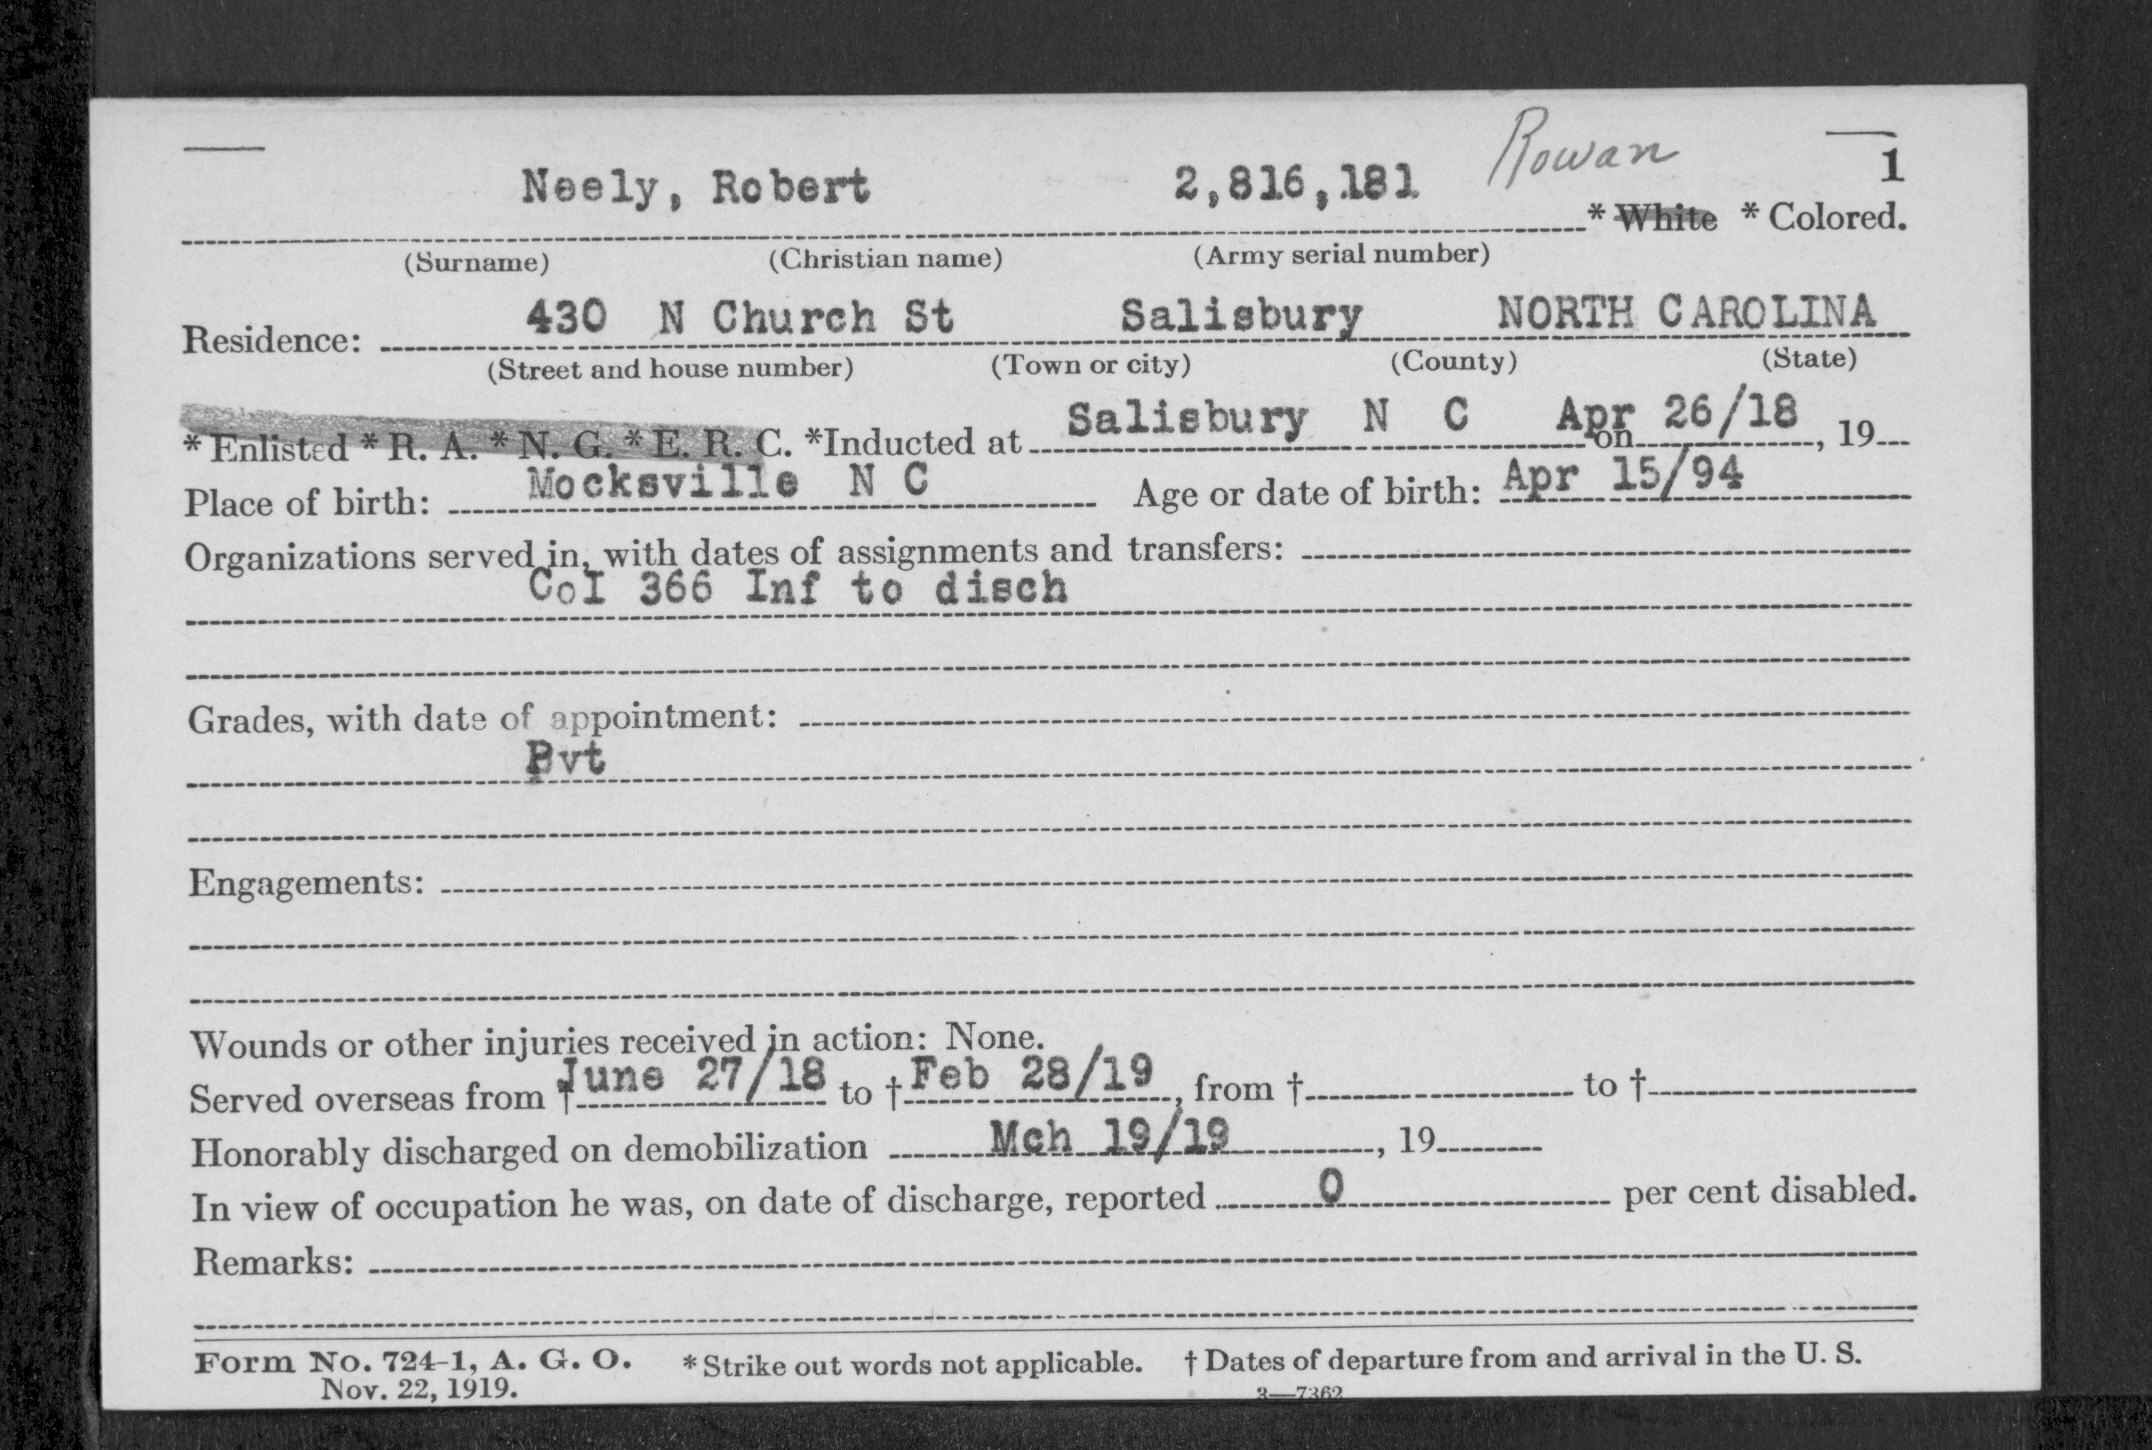 Rowan
1
Neely, Robert 2,816,181 * White * Colored.
(Surname) (Christian name) (Army serial number)
Residence: 430 N Church St Salisbury NORTH CAROLINA
(Street and house number) (Town or city) (County) (State)
* Enlisted * R. A. * N. G. * E. R. C. *Inducted at Salisbury N C on Apr 26/18, 19
Place of birth: Mocksville N C Age or date of birth: Apr 15/94
Organizations served in, with dates of assignments and transfers:
CoI 366 Inf to disch
Grades, with date of appointment:
Pvt
Engagements:
Wounds or other injuries received in action: None.
Served overseas from † June 27/18 to † Feb 28/19, from † to †
Honorably discharged on demobilization Mch 19/19, 19
In view of occupation he was, on date of discharge, reported 0 per cent disabled.
Remarks:
Form No. 724-1, A. G. O. * Strike out words not applicable. † Dates of departure from and arrival in the U. S.
Nov. 22, 1919. 3—7362